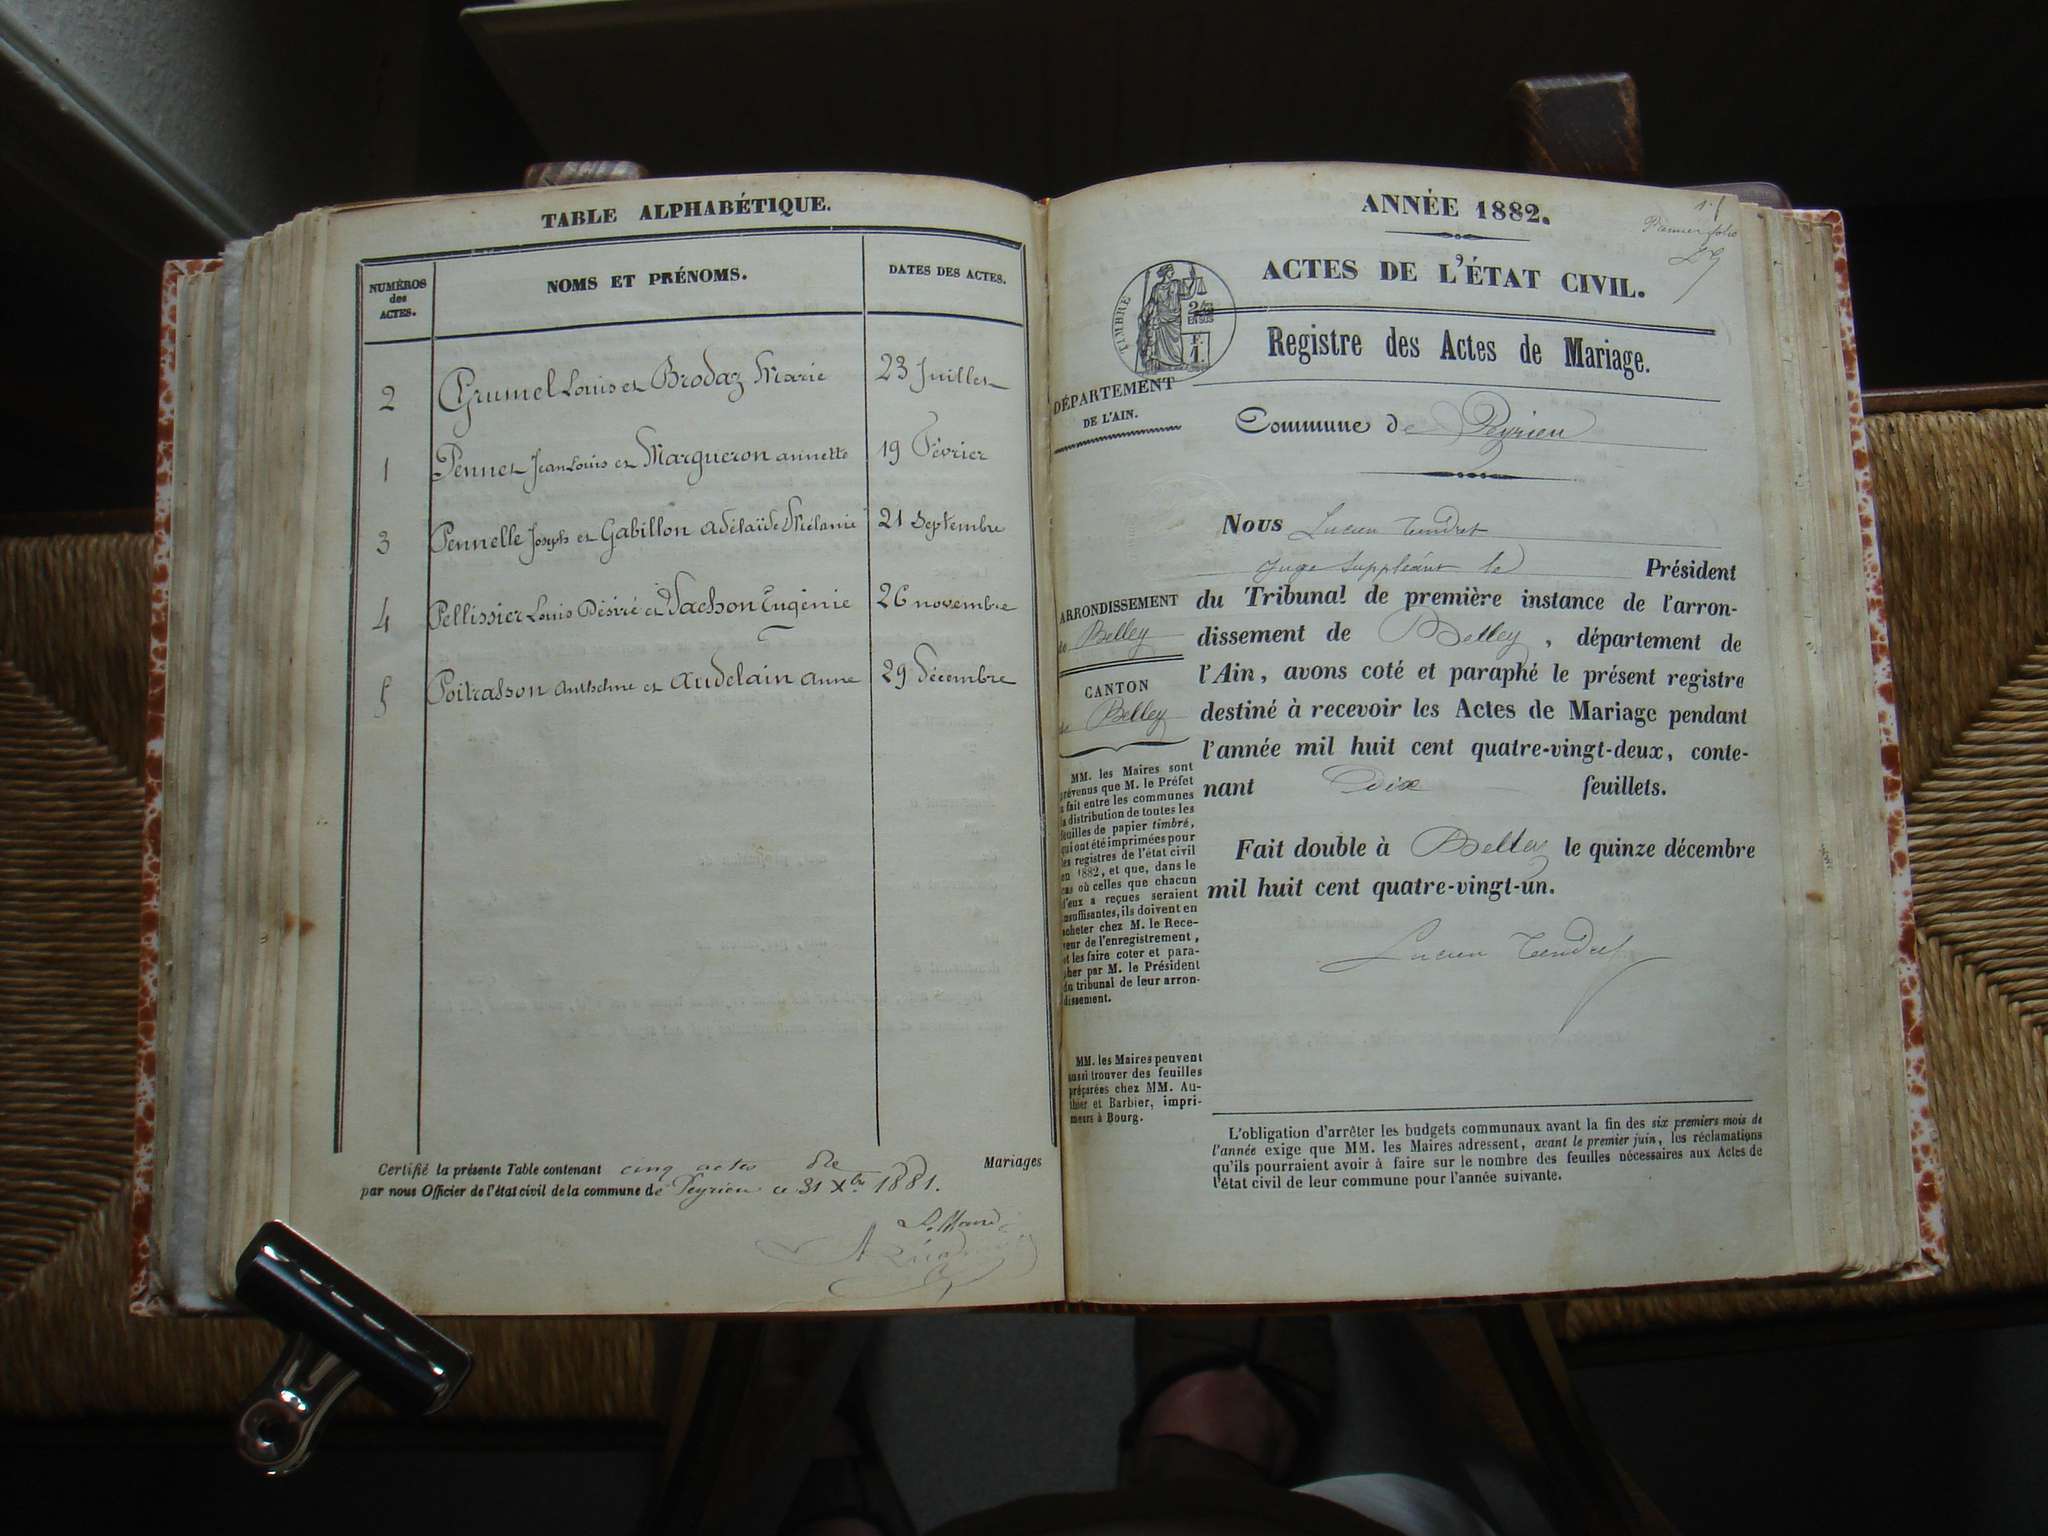 TABLE ALPHABÉTIQUE.
NUMÉROS
des
ACTES.
NOMS ET PRÉNOMS.
DATES DES ACTES.
2 Grumel Louis et Brodaz Marie 23 Juillet
1 Pennet Jean Louis et Margueron annette 19 Février
3 Pennelle Joseph et Gabillon adélaïde Mélanie 21 Septembre
4 Pellissier Louis Désiré et Vachon Eugénie 26 novembre
5 Poitrasson Anthelme et Audelain Anne 29 Décembre
Certifié la présente Table contenant cinq actes de Mariages
par nous Officier de l'état civil de la commune de Peyrieu ce 31 Xbre 1881.
Le Maire
ANNÉE 1882.
1.
Premier folio
ACTES DE L'ÉTAT CIVIL.
TIMBRE
2/10
EN SUS
F.
1.
Registre des Actes de Mariage.
DÉPARTEMENT
DE L'AIN.
Commune de Peyrieu
Nous Lucien Tendret
Juge Suppléant le Président
du Tribunal de première instance de l'arron-
dissement de Belley, département de
l'Ain, avons coté et paraphé le présent registre
destiné à recevoir les Actes de Mariage pendant
l'année mil huit cent quatre-vingt-deux, conte-
nant Dix feuillets.
Fait double à Belley le quinze décembre
mil huit cent quatre-vingt-un.
Lucien Tendret
ARRONDISSEMENT
de Belley
CANTON
de Belley
MM. les Maires sont
prévenus que M. le Préfet
a fait entre les communes
la distribution de toutes les
feuilles de papier timbré,
qui ont été imprimées pour
les registres de l'état civil
en 1882, et que, dans le
cas où celles que chacun
d'eux a reçues seraient
insuffisantes, ils doivent en
acheter chez M. le Rece-
veur de l'enregistrement,
et les faire coter et para-
pher par M. le Président
du tribunal de leur arron-
dissement.
MM. les Maires peuvent
aussi trouver des feuilles
préparées chez MM. Au-
thier et Barbier, impri-
meurs à Bourg.
L'obligation d'arrêter les budgets communaux avant la fin des six premiers mois de
l'année exige que MM. les Maires adressent, avant le premier juin, les réclamations
qu'ils pourraient avoir à faire sur le nombre des feuilles nécessaires aux Actes de
l'état civil de leur commune pour l'année suivante.